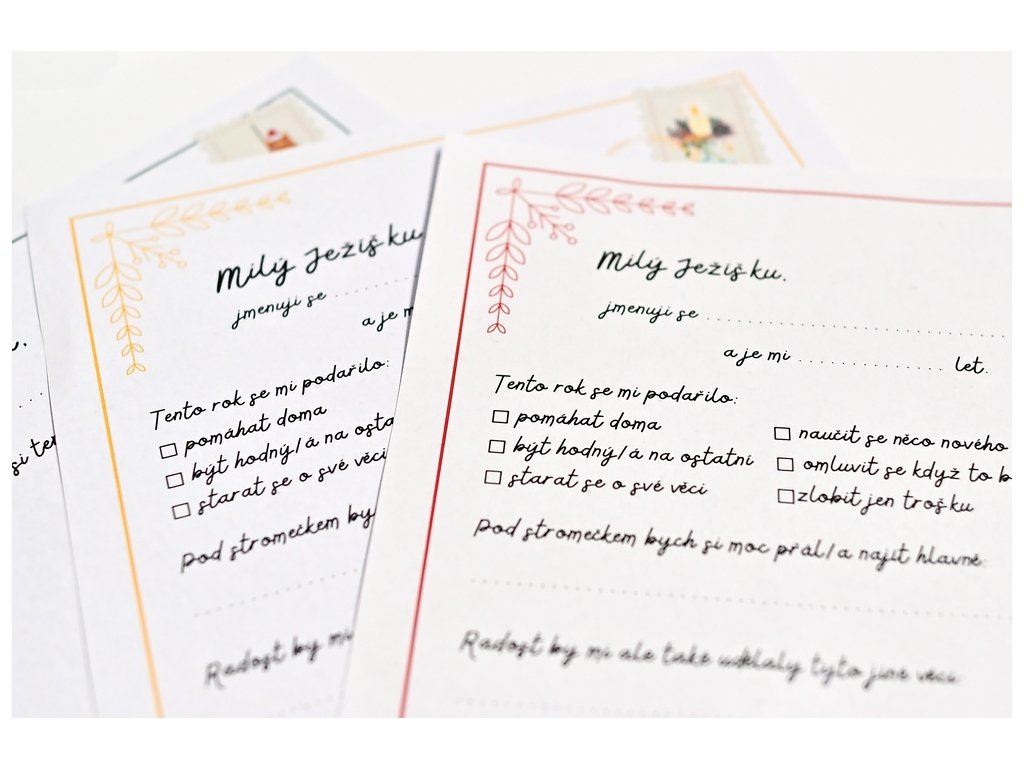 si
Milý Ježíšku
jmenuji se
a je m
Tento rok se mi podařilo:
pomáhat doma
být hodný/á na osta
starat se o své věci
Pod stromečkem by
Radost by mi
Milý Ježíšku,
jmenuji se
a je mi let.
Tento rok se mi podařilo:
pomáhat doma
naučit se něco nového
být hodný/á na ostatní
omluvit se když to b
starat se o své věci
zlobit jen trošku
Pod stromečkem bych si moc přál/a najít hlavně:
Radost by mi ale také udělaly tyto jiné věci: